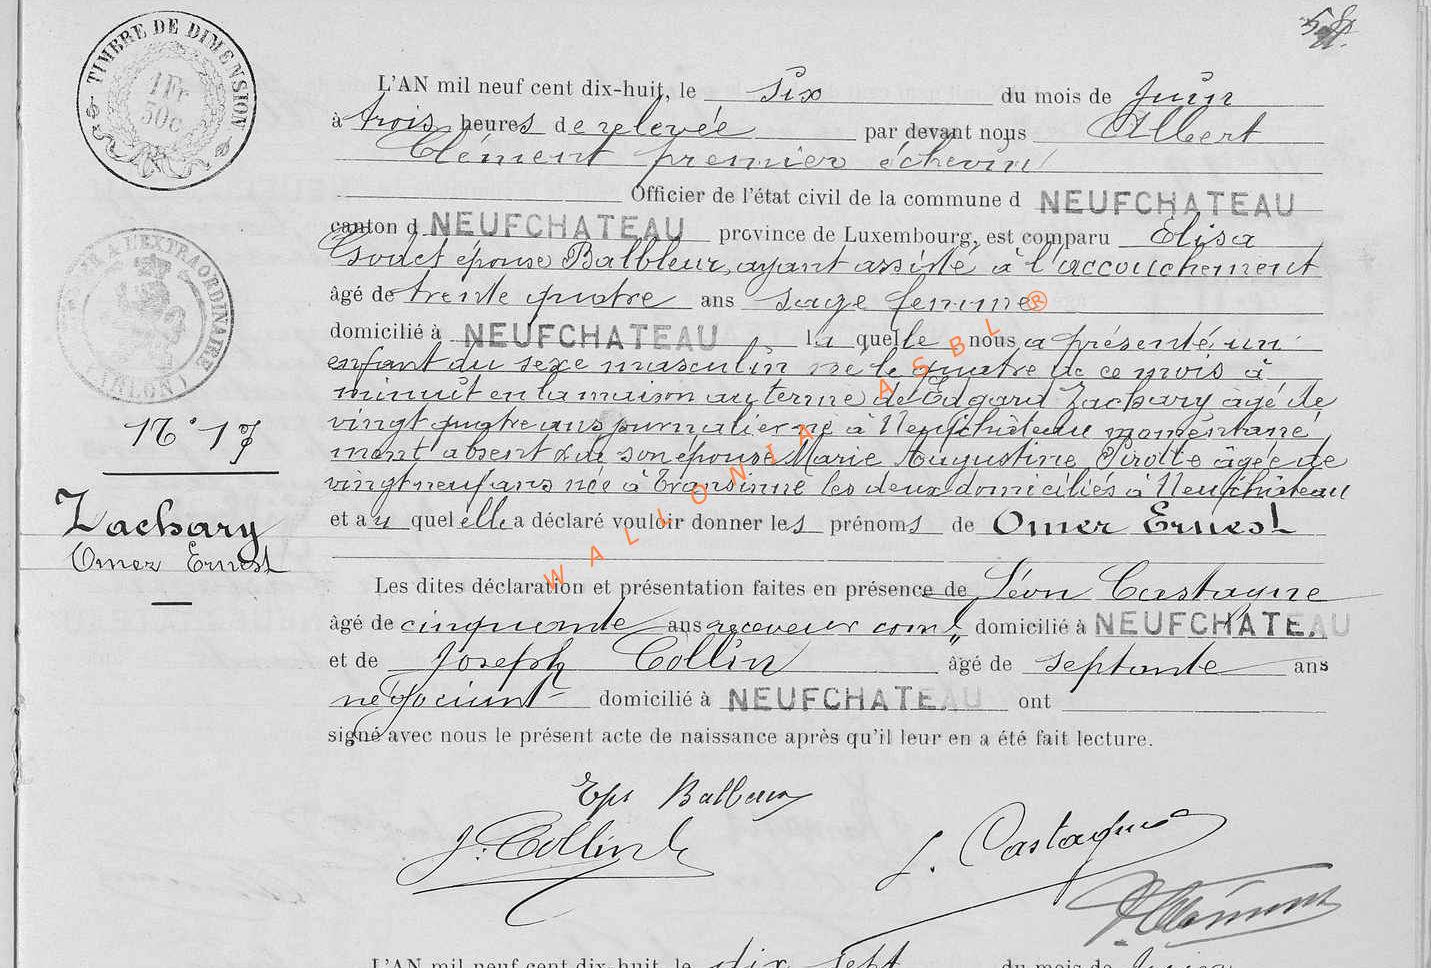 TIMBRE DE DIMENSION
1 Fr
50c
L'AN mil neuf cent dix-huit, le six du mois de juin
à trois heures de relevée par devant nous Albert
Clément premier échevin
Officier de l'état civil de la commune d NEUFCHATEAU
canton d NEUFCHATEAU province de Luxembourg, est comparu Elisa
épouse Balbleur, ayant assisté à l'accouchement
âgé de trente quatre ans sage femme
domicilié à NEUFCHATEAU la quelle nous a présenté un
enfant du sexe masculin né le quatre de ce mois à
minuit en la maison au terme de Edgard Zachary âgé de
vingt quatre ans journalier né à Neufchâteau momentané
ment absent & de son épouse Marie Augustine Pirotte âgée de
vingt neuf ans née à Transinne les deux domiciliés à Neufchâteau
et au quel elle a déclaré vouloir donner les prénoms de Omer Ernest
Les dites déclaration et présentation faites en présence de Léon Castagne
âgé de cinquante ans receveur coml domicilié à NEUFCHATEAU
et de Joseph Collin âgé de septante ans
négociant domicilié à NEUFCHATEAU ont
signé avec nous le présent acte de naissance après qu'il leur en a été fait lecture.
A L'EXTRAORDINAIRE
(ARLON)
N° 17
Zachary
Omer Ernest
Eps Balleur
J. Collin
L. Castagne
Clément
WALLONIA ASBL ®
L'AN mil neuf cent dix-huit, le dix sept du mois de juin